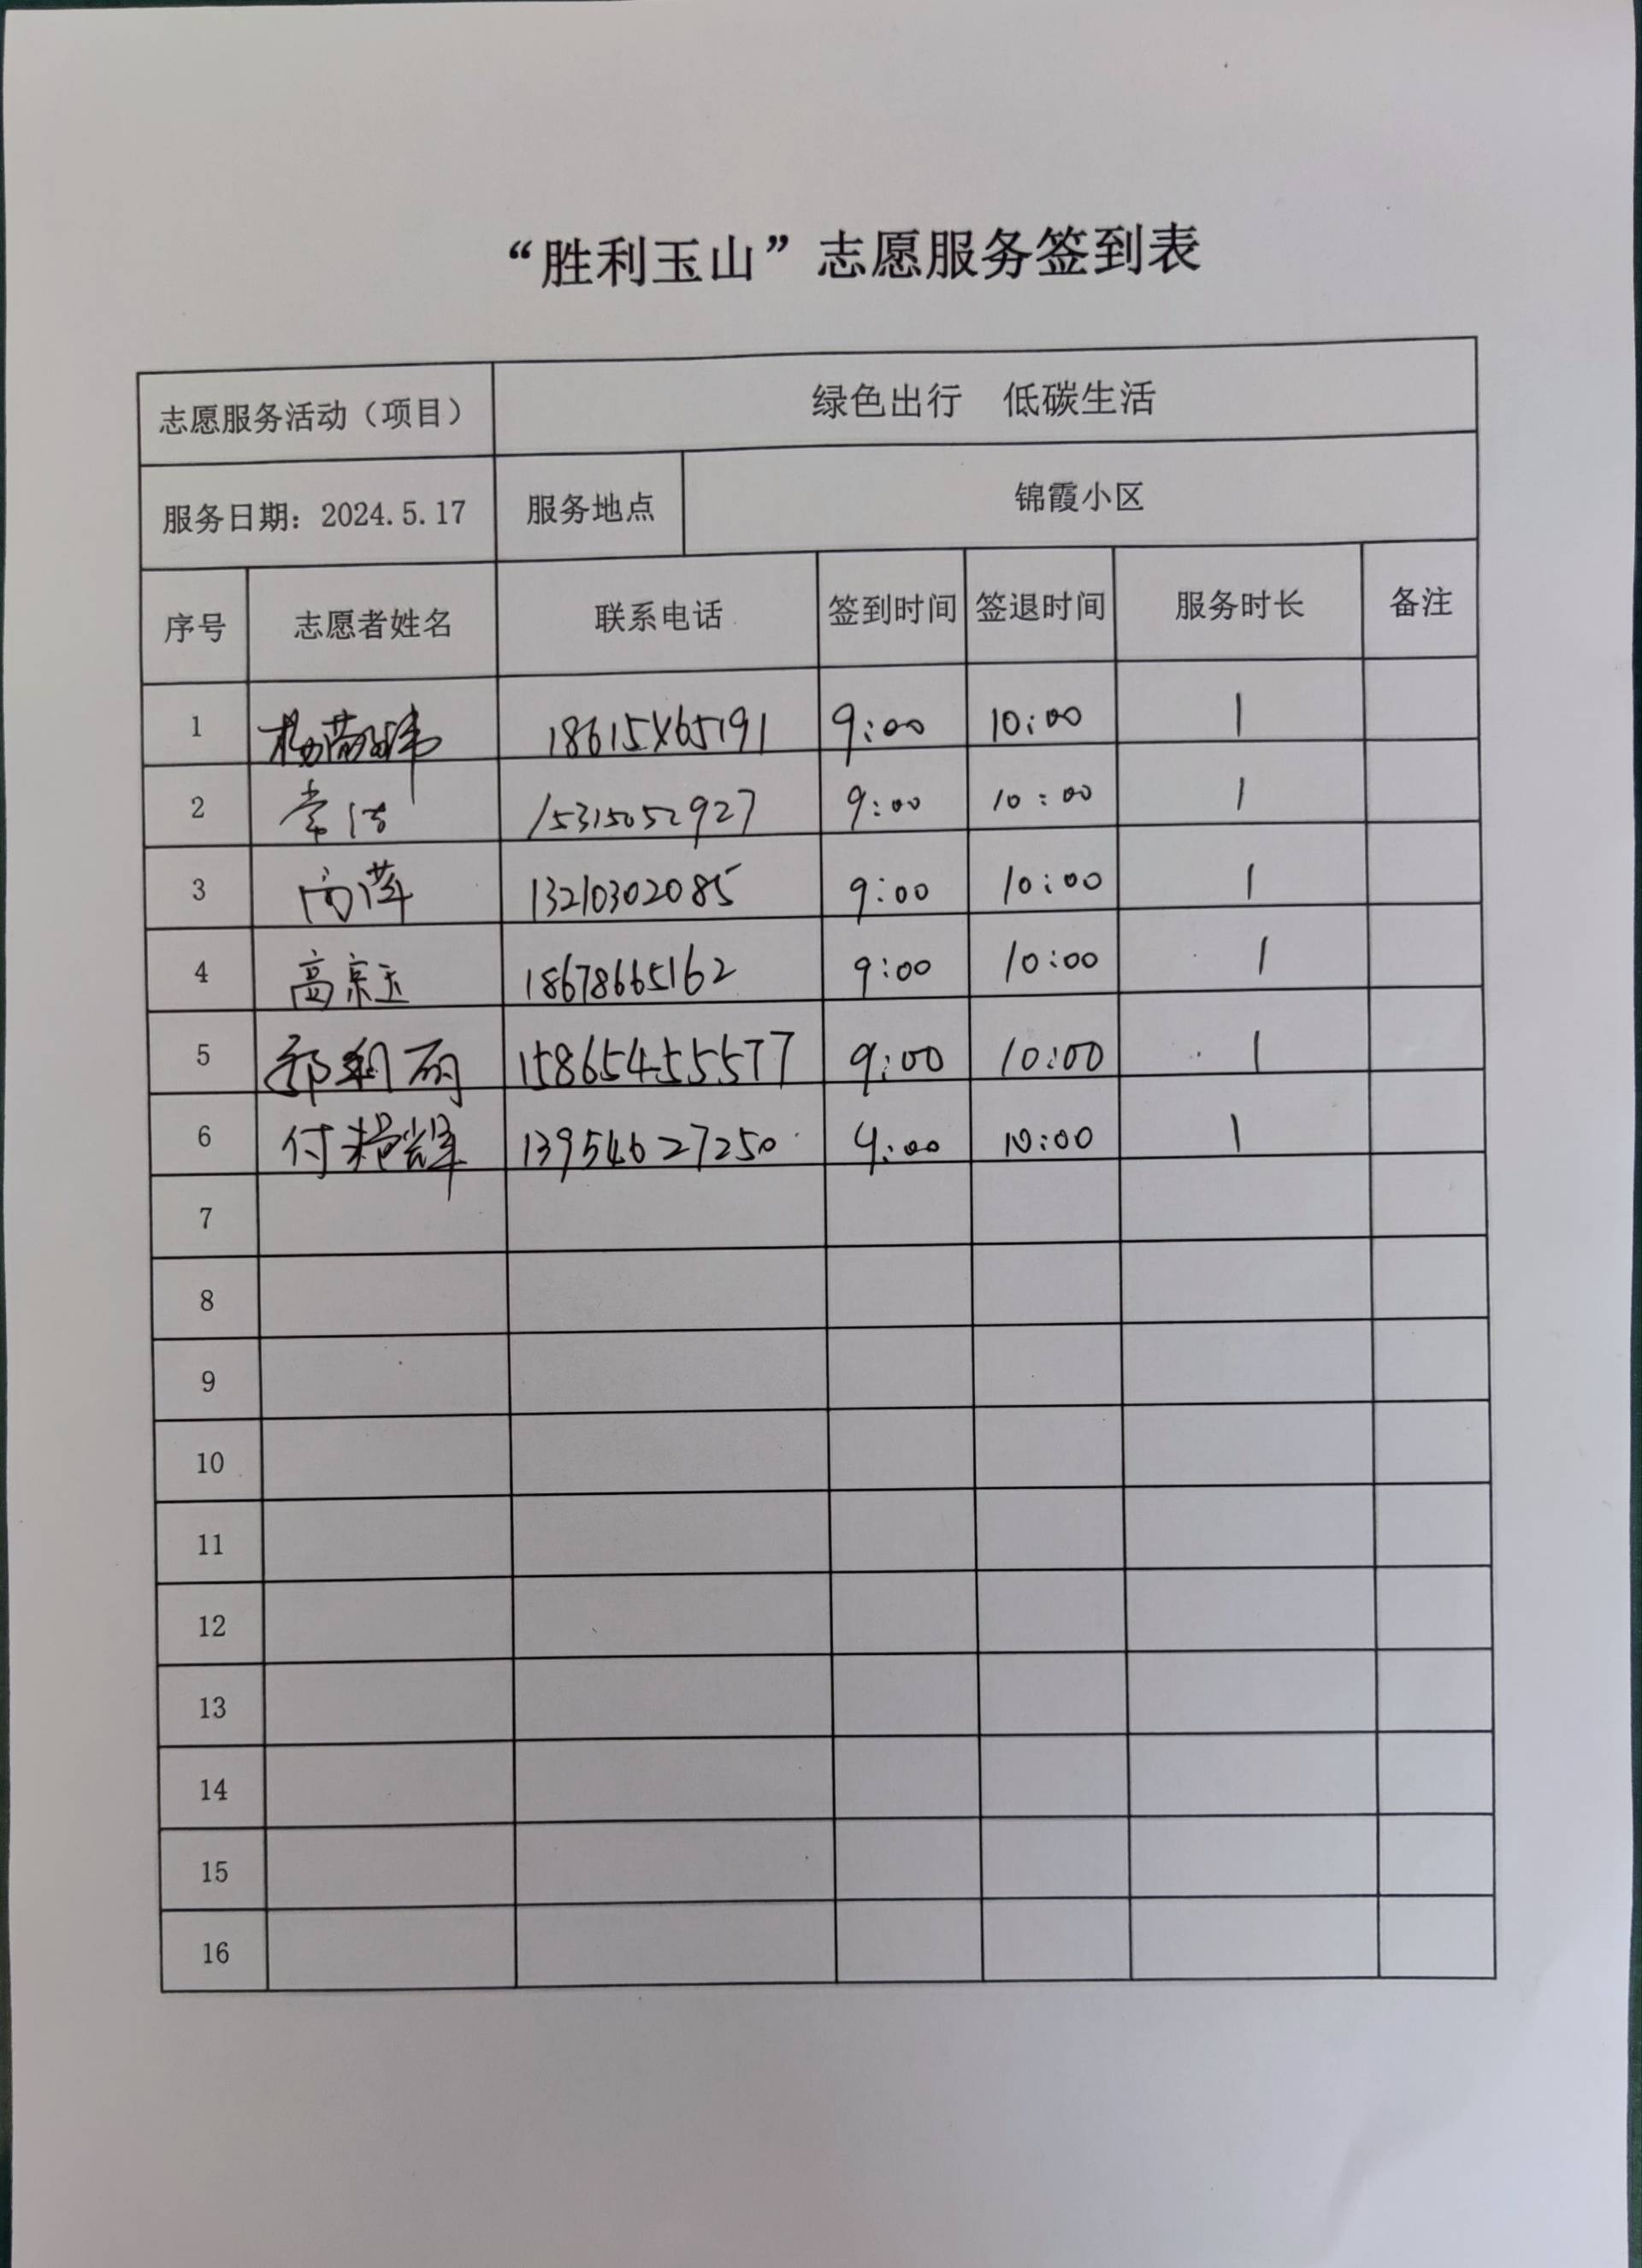 “胜利玉山”志愿服务签到表
志愿服务活动（项目） 绿色出行 低碳生活
服务日期：2024.5.17 服务地点 锦霞小区
序号 志愿者姓名 联系电话 签到时间 签退时间 服务时长 备注
1 9:00 10:00 1
2 常洁 15315052927 9:00 10:00 1
3 高萍 13210302085 9:00 10:00 1
4 高京玉 18678665162 9:00 10:00 1
5 郑利丽 15865455577 9:00 10:00 1
6 付 辉 13954627250 9:00 10:00 1
7
8
9
10
11
12
13
14
15
16